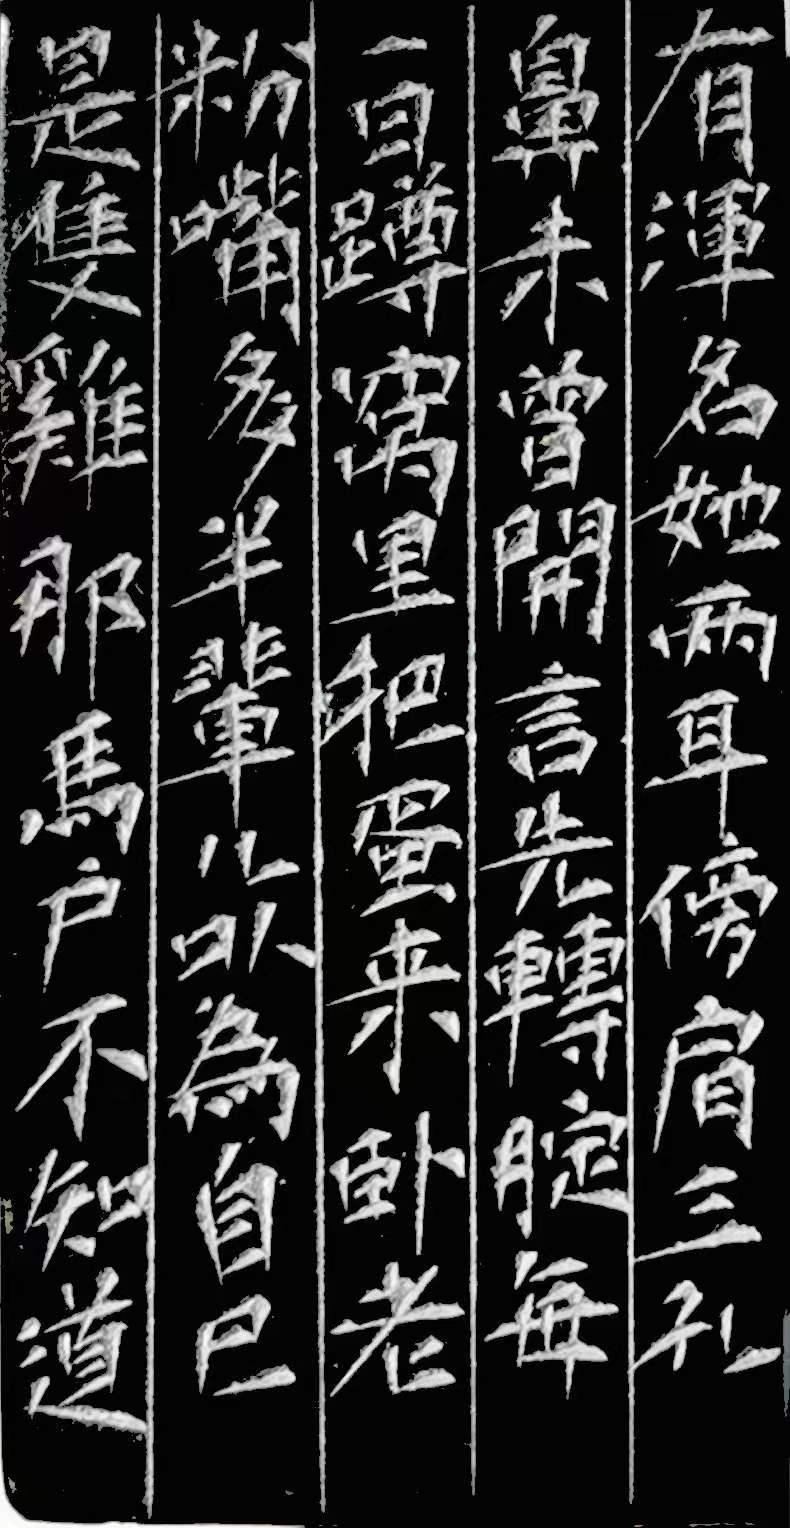 有渾名她两耳傍肩三孔
鼻未曾開言先轉腚每
一日蹲窩里把蛋来卧老
粉嘴多半輩儿以為自己
是隻雞那馬户不知道